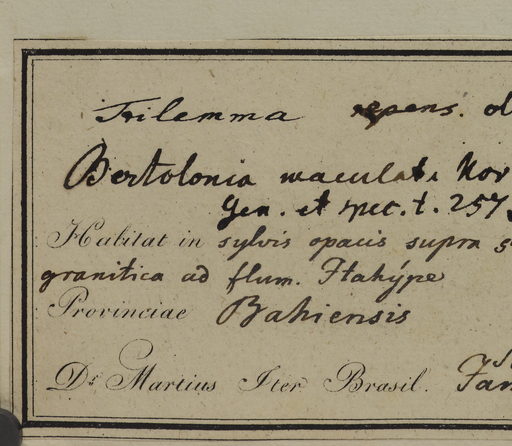 Trilemma repens. ol
Bertolonia maculata Nov
Gen. et spec. t. 257
Habitat in sylvis opacis supra s
granitica ad flum. Itahýpe
Provinciae Bahiensis
Dr. Martius Iter Brasil. Jan